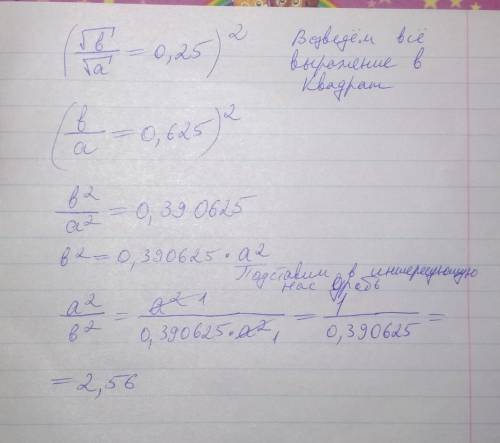 (√в/√а = 0,25)² Возведём всё
выражение в
квадрат
(в/а = 0,625)²
в²/а² = 0,390625
в² = 0,390625 · а²
Подставим в интересующую
нас дробь
а²/в² = а² 1/0,390625·а² 1 = 1/0,390625 =
= 2,56